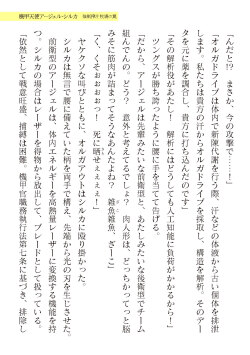 機甲天使アージェル・シルカ
「んだと!? まさか、今の攻撃で……！」
「オルガドライブは体内で新陳代謝を行う際、汗などの体液から古い個体を排泄
します。私たちは貴方の汗からオルガドライブを採取し、構造を解析。そのデー
タを元に薬を調合し、貴方に打ち込んだのです」
「その解析役があたし！ 解析にはどうしても人工知能に負荷がかかるから！」
ツングスが勝ち誇ったように腰に手を当てて告げる。
「だから、アージェルは貴方と、あたしみたいな後衛型でチーム
組んでんの。どう？ 意外と考えてるでしょ？ 肉人形は、どいつもこいつも脳
みそに筋肉が詰まってそうだもんねぇ？ 雑魚雑魚、ざーこ」
「く、くそぉぉぉぉっ！ 死に晒せぇぇぇっ！」
ヤケクソな叫びとともに、オルガアサルトはシルカに殴り掛かった。
シルカは無言で腰に備えていた柄を両手で構え、先端から光の刃を生じさせた。
前衛型のアージェルは、体内エネルギーを高熱量レーザーに変換する機能を持
つ。シルカの場合はレーザーを得物から放出して、ブレードとして扱っている。
「依然として戦意旺盛。捕縛は困難。機甲官職務執行法第七条に基づき、排除し